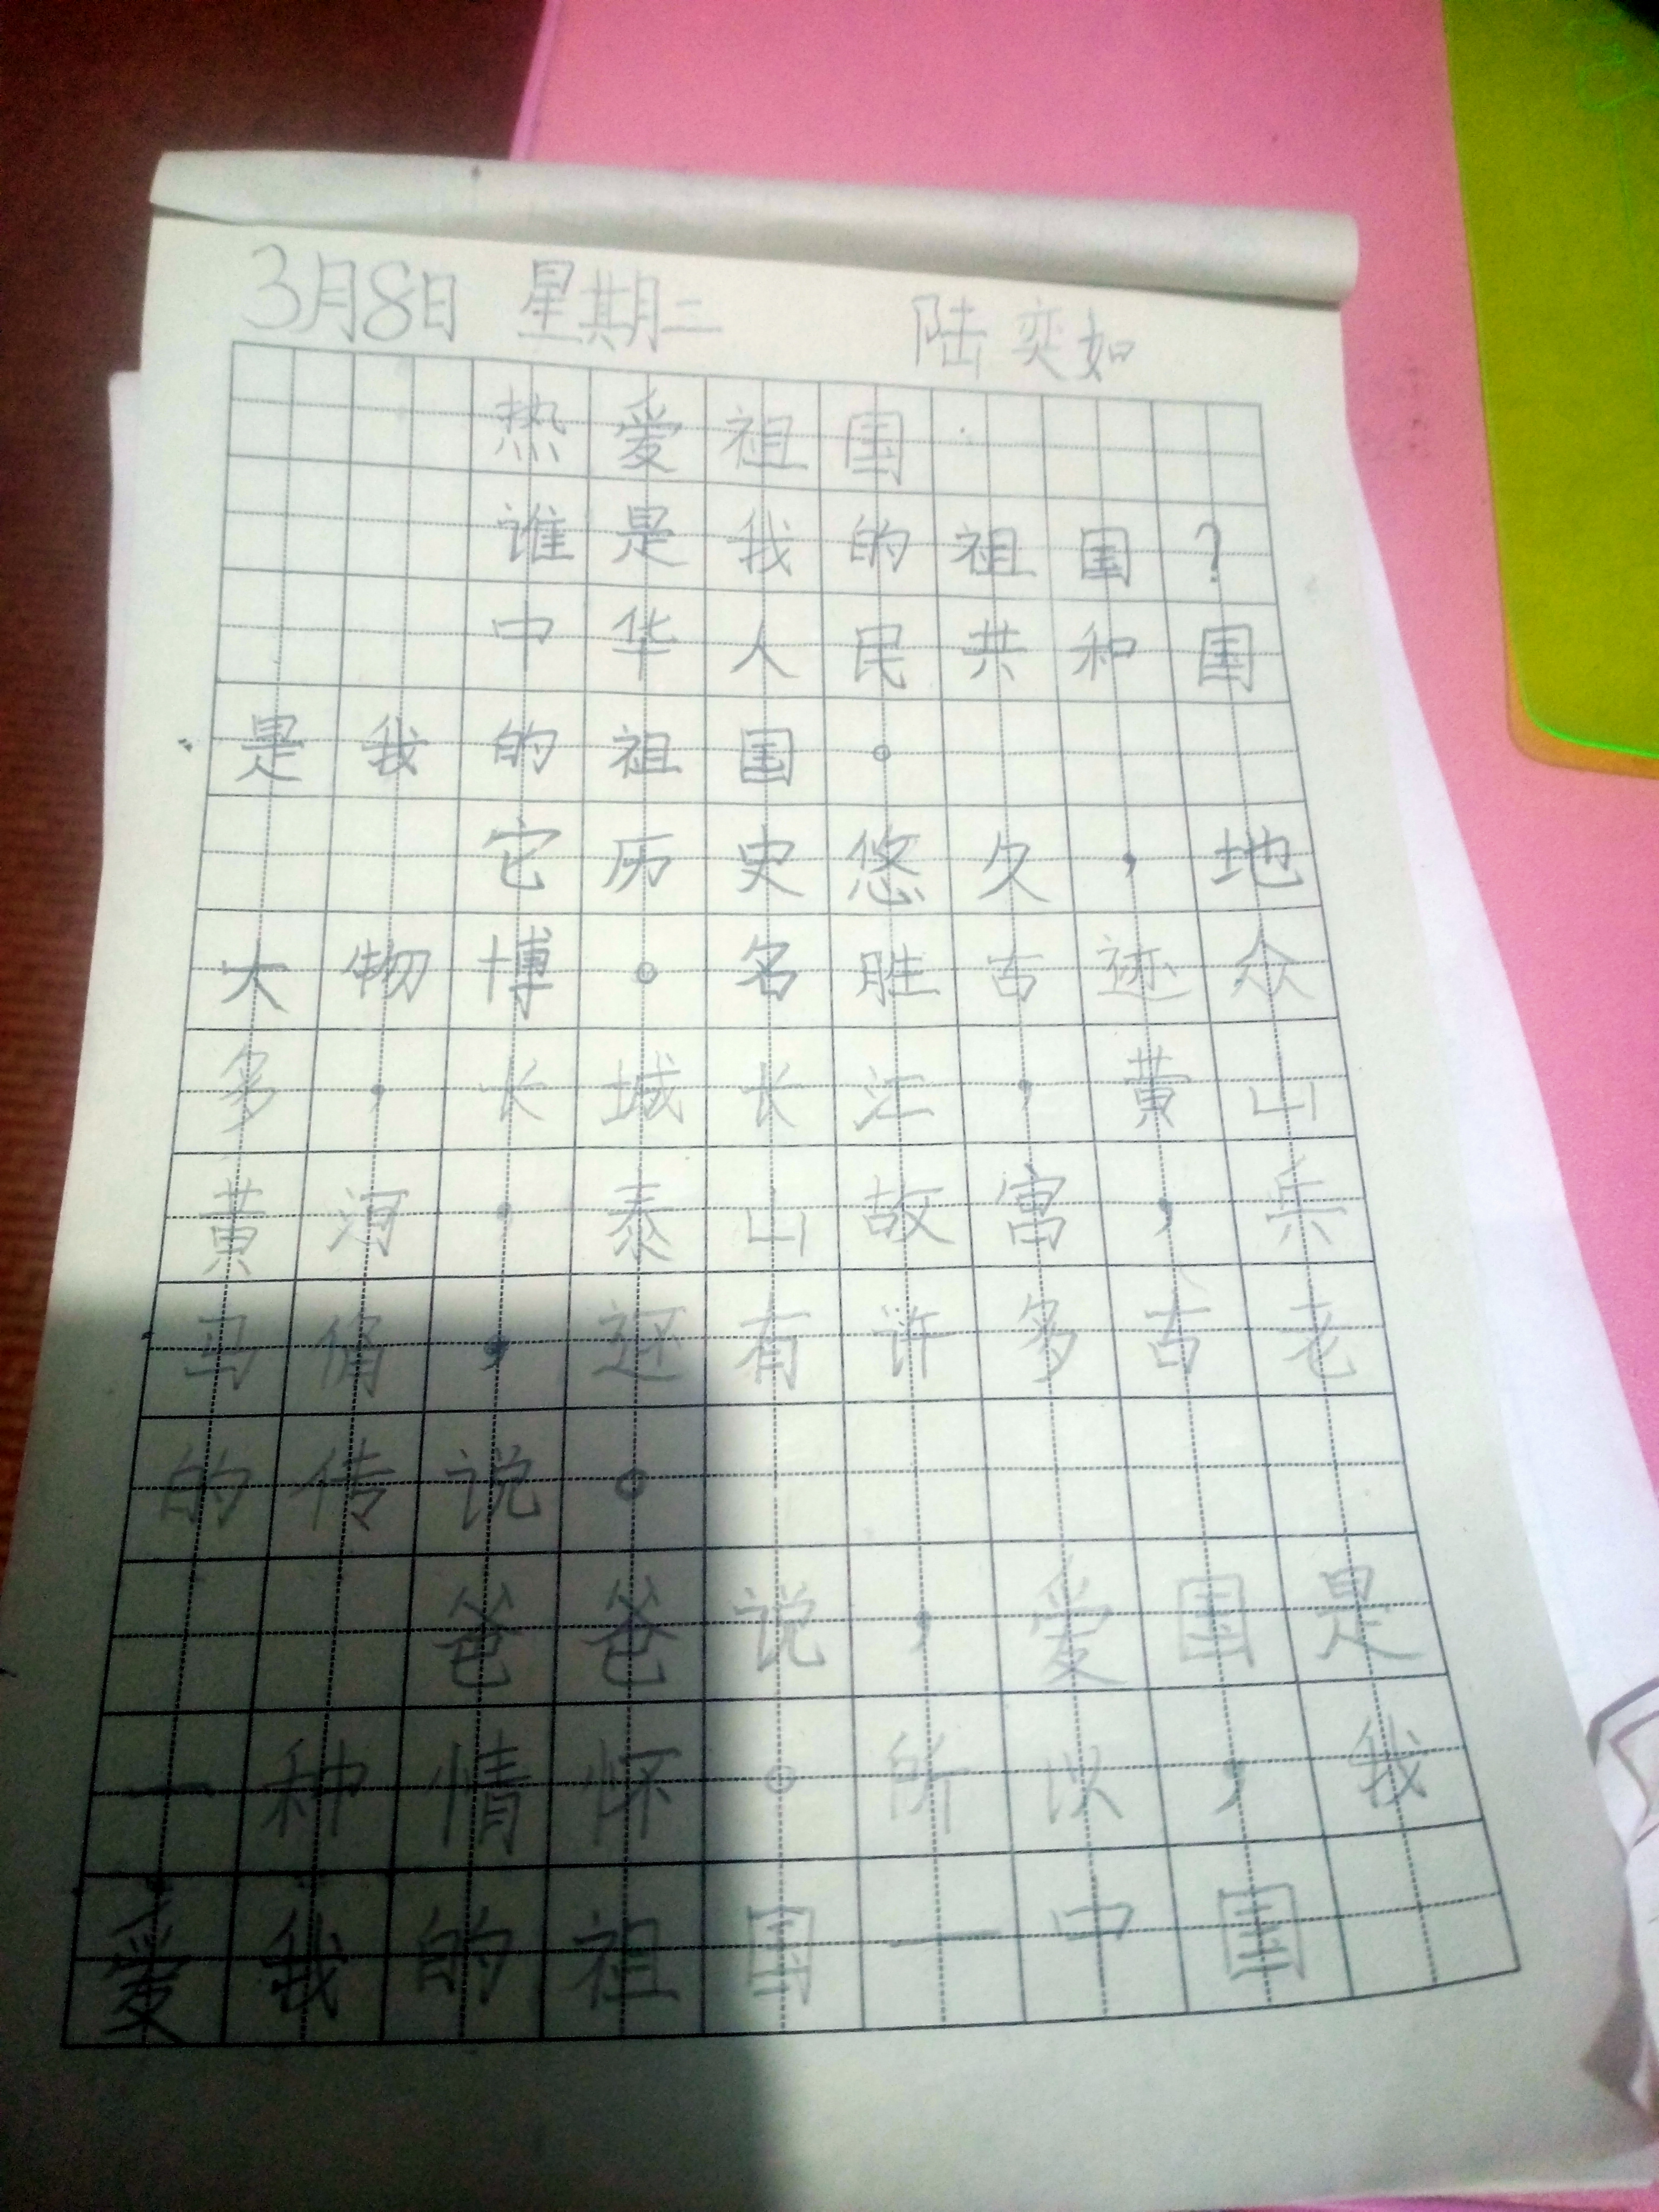 3月8日 星期三 陆奕如
热爱祖国
谁是我的祖国?
中华人民共和国
是我的祖国。
它历史悠久,地
大物博。名胜古迹众
多,长城长江,黄山
黄河,泰山故宫,兵
马俑,还有许多古老
的传说。
爸爸说,爱国是
一种情怀。所以,我
爱我的祖国一中国